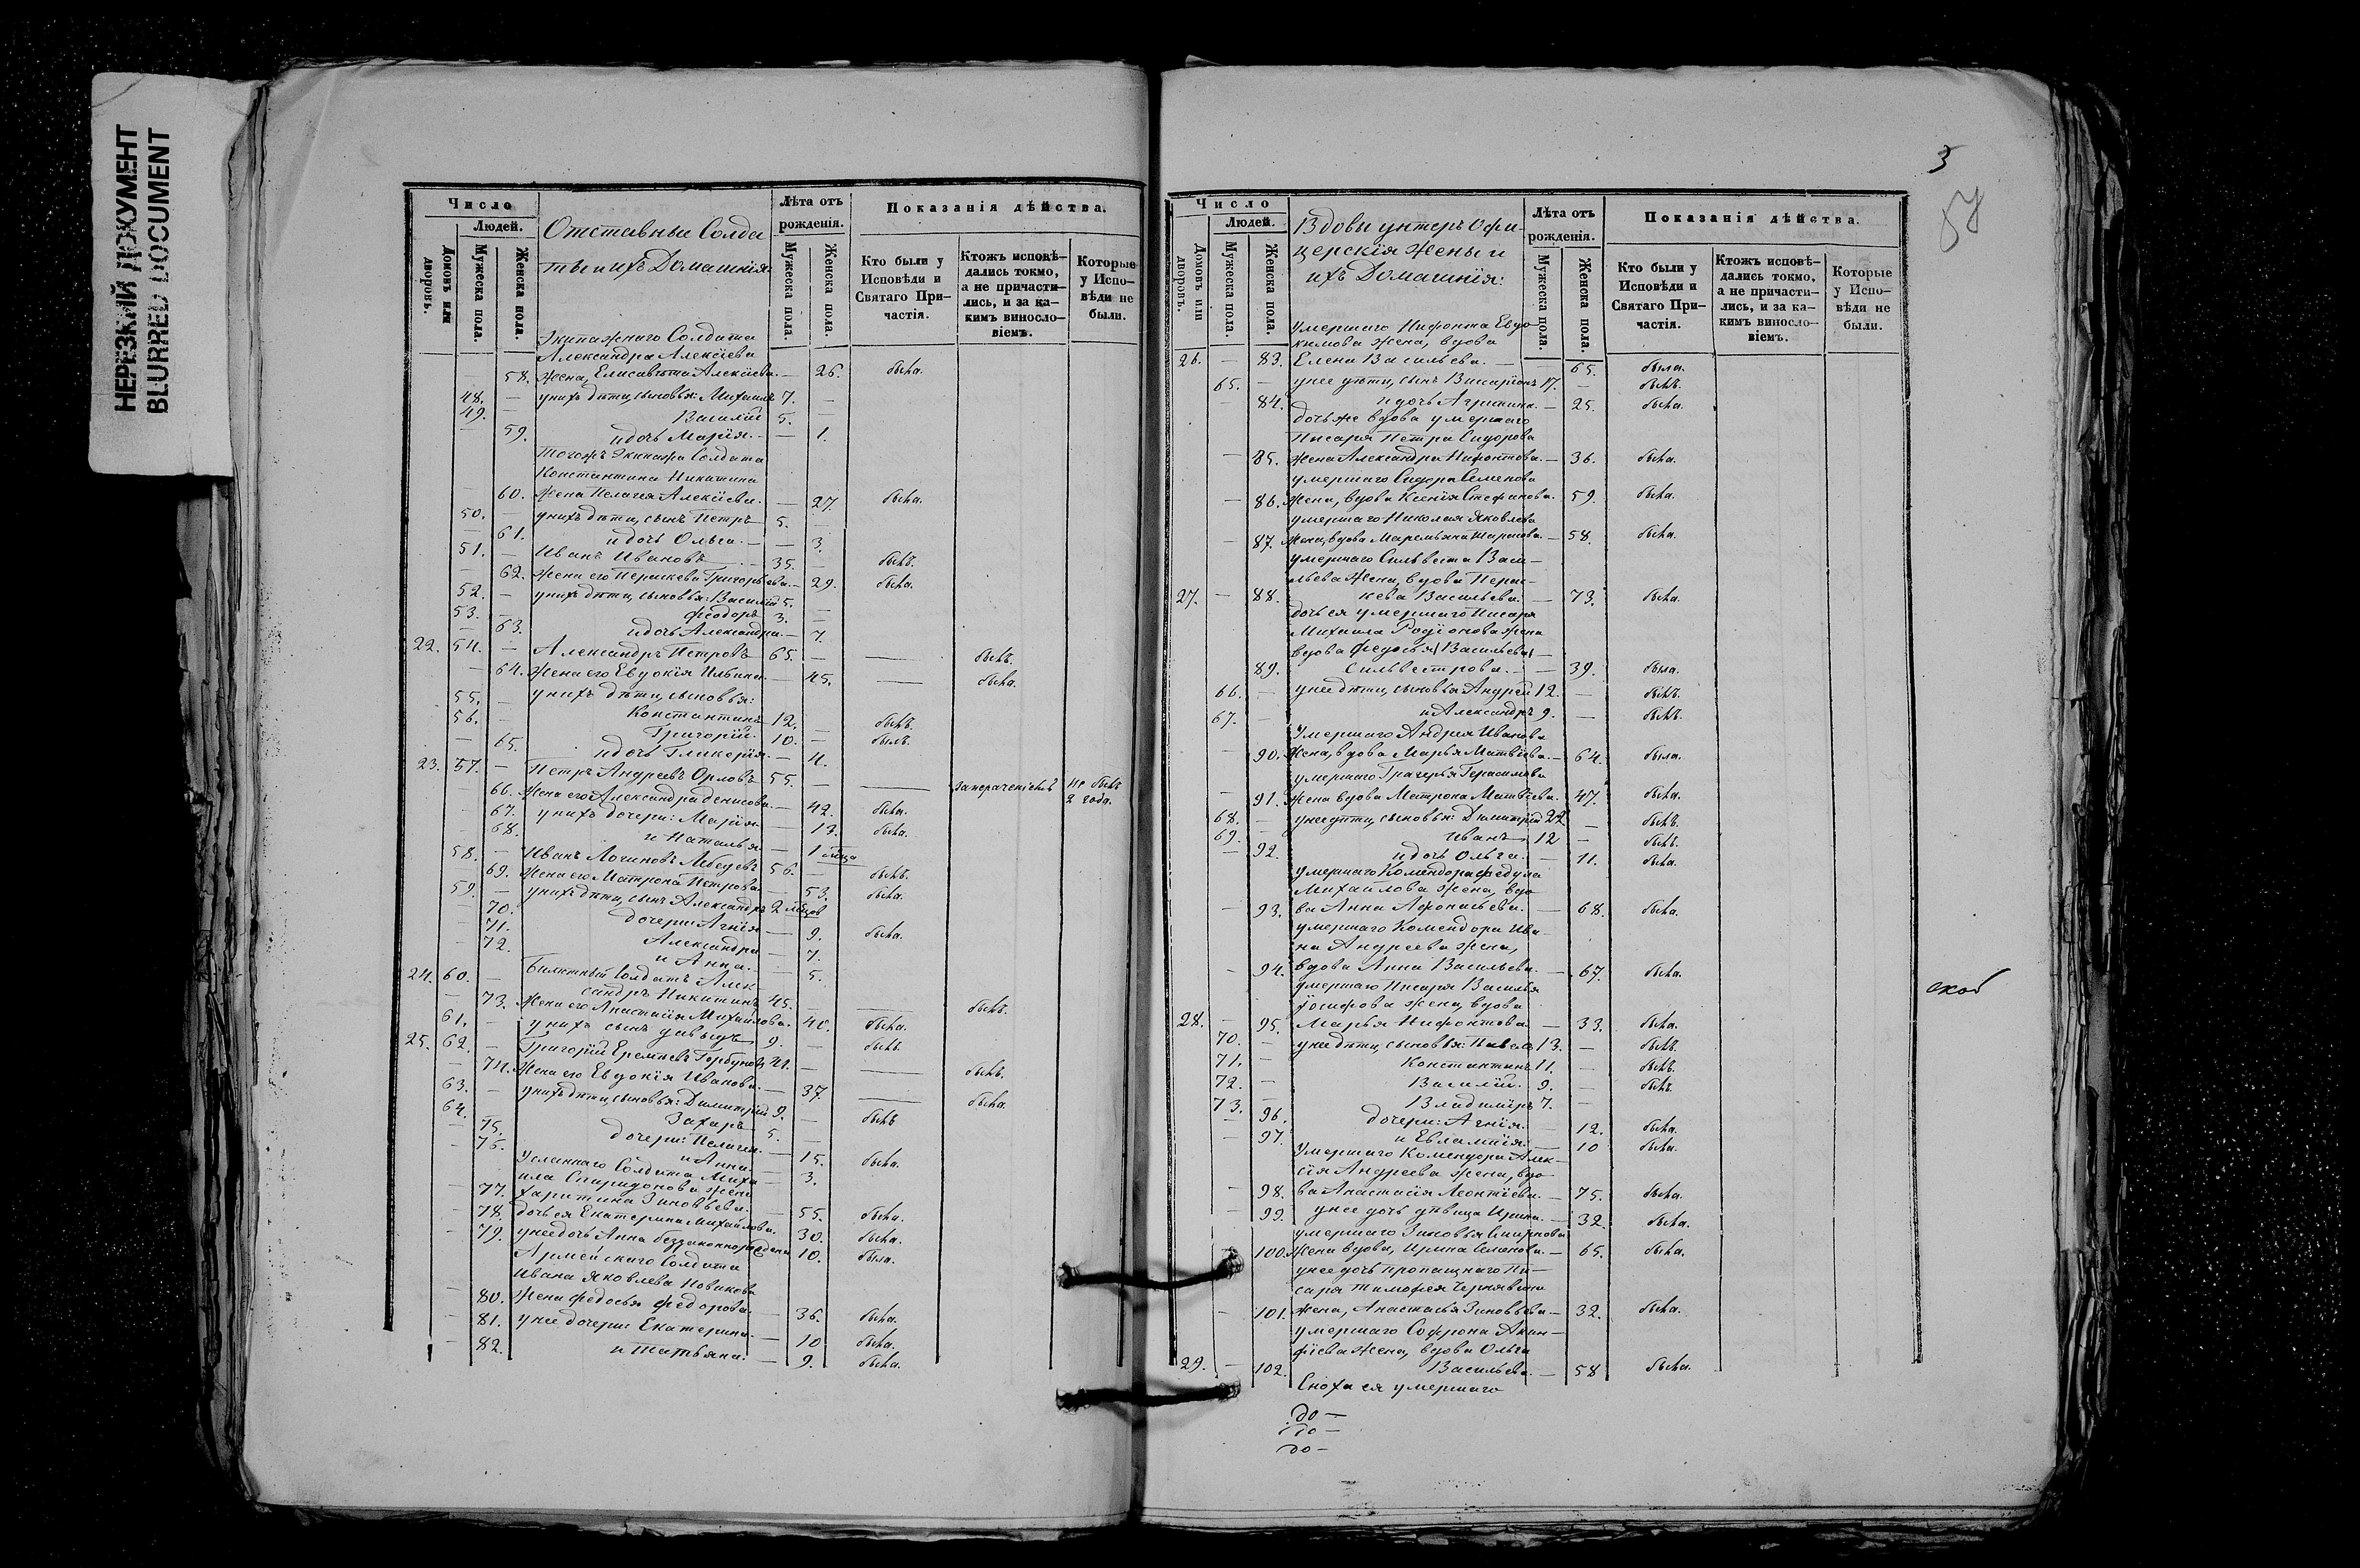 НЕРЕЗКИЙ ДОКУМЕНТ
BLURRED DOCUMENT
Число
Людей.
Домовъ или дворовъ.
Мужеска пола.
Женска пола.
Отставные Солда
ты и ихъ Домашнія:
Лѣта отъ рожденія.
Мужеска пола.
Женска пола.
Показанія дѣйства.
Кто были у Исповѣди и Святаго Причастія.
Ктожъ исповѣдались токмо, а не причастились, и за какимъ винословіемъ.
Которые у Исповѣди не были.
Экипажнаго Солдата
Александра Алексіева
— 58. жена, Елисавета Алексіева. — 26. была.
48. — у нихъ дѣти, сыновья: Михаилъ 7. —
49. — Василій 5. —
— 59. и дочь Марія. — 1.
Тогожъ Экипажа Солдата
Константина Никитина
— 60. жена Пелагея Алексіева. — 27. была.
50. — у нихъ дѣти, сынъ Петръ 5. —
61. и дочь Ольга. — 3.
51. — Иванъ Ивановъ 35. — былъ.
62. жена его Перскева Григорьева. — 29. была.
52. — у нихъ дѣти, сыновья: Василій 5. —
53. — Феодоръ 3. —
— 63. и дочь Александра. — 7.
22. 54. — Александръ Петровъ 65. — былъ.
— 64. жена его Евдокія Ильина. — 45. была.
55. — у нихъ дѣти, сыновья:
56. — Константинъ 12. — былъ.
Григорій. 10. — былъ.
— 65. и дочь Гликерія. — 4.
23. 57. — Петръ Андреевъ Орловъ 55. — не былъ 2 года.
66. жена его Александра Денисова. — 42. была.
67. у нихъ дочери: Марія — 13. была.
68. и Наталья. — 1 мца
58. — Иванъ Логиновъ Лебедевъ 56. — былъ.
69. жена его Матрона Петрова — 53. была.
59. — у нихъ дѣти, сынъ Александръ 2 мцов
70. дочери: Агнія — 9. была.
71. Александра — 7.
72. и Анна. — 5.
24. 60. — Билетный Солдатъ Алек
сандръ Никитинъ 45. — былъ.
73. жена его Анастасія Михайлова. 40. была.
61. — у нихъ сынъ Давыдъ 9. — былъ.
25. 62. — Григорій Еремѣевъ Горбуновъ 41. — былъ.
74. жена его Евдокія Иванова. — 37 была.
63. — у нихъ дѣти, сыновья: Димитрій 9. — былъ
64. — Захаръ 5. —
75. дочери: Пелагея. — 15. была.
76. и Анна. — 3.
Солдата Миха
ила Спиридонова жена
77. Харитина Зиновьева. — 55. была.
78. дочь ея Екатерина Михайлова. 30. была.
79. у нее дочь Анна беззаконнорожденная 10. была.
Армейскаго Солдата
Ивана Яковлева Новикова
80. жена Федосья Федорова — 36. была.
81. у нее дочери: Екатерина. — 10 была.
82. и Татьяна. — 9. была.
3
Число
Людей.
Домовъ или дворовъ.
Мужеска пола.
Женска пола.
Вдовы унтеръ Офи-
церскія жены и
ихъ Домашнія:
Лѣта отъ рожденія.
Мужеска пола.
Женска пола.
Показанія дѣйства.
Кто были у Исповѣди и Святаго Причастія.
Ктожъ исповѣдались токмо, а не причастились, и за какимъ винословіемъ.
Которые у Исповѣди не были.
Умершаго Нифонта Евдо
кимова жена, вдова
26. — 83. Елена Васильева. — 65. была.
65. — у нее дѣти, сынъ Виссаріонъ 17. — былъ.
— 84. и дочь Агрипина. — 25. была.
дочь же вдова умершаго
Писаря Петра Сидорова
— 85. жена Александра Нифонтова. — 36. была.
умершаго Сидора Семенова
— 86. жена, вдова Ксенія Стефанова. 59. была.
умершаго Николая Яковлева
— 87. жена, вдова — 58. была.
умершаго Сильвеста Васи—
льева жена, вдова Перас—
27. — 88. кева Васильева. — 73. была.
дочь ея умершаго Писаря
Михаила Родіонова жена
вдова Федосья (Васильева) —
89. Сильвестрова. — 39. была.
66. — у нее дѣти, сыновья Андрей 12. — былъ.
67. — и Александръ 9. — былъ.
Умершаго Андрея Иванова
90. жена, вдова Марья Матвіева. — 64. была.
умершаго Григорья Герасимова
91. жена вдова Матрона Матвіева. 47. была.
68. — у нее дѣти, сыновья: Димитрій 22 — былъ.
69. — Иванъ 12 — былъ.
92. и дочь Ольга. — 11. была.
умершаго Комендора Федула
Михайлова жена, вдо
— 93. ва Анна Афонасьева. — 68. была.
умершаго Комендора Ива
на Андреева жена,
— 94. вдова Анна Васильева. — 67. была.
умершаго Писаря Василья
Іосифова жена, вдова
28. — 95. Марья Нифонтова — 33. была.
70. — у нее дѣти, сыновья: Павелъ 13. — былъ.
71. — Константинъ 11. — былъ.
72. — Василій. 9. — былъ.
73. — Владиміръ 7. —
— 96. дочери: Агнія. — 12. была.
— 97. и Евлампія. — 10 была.
Умершаго Комендора Алек—
сія Андреева жена, вдо—
— 98. ва Анастасія Леонтіева. — 75. была.
— 99. у нее дочь дѣвица Ирина. — 32. была.
умершаго Зиновья Смирнова
100. жена вдова, Ирина Семенова. — 65. была.
у нее дочь пропащнаго Пи—
саря Тимофея Чернявина
— 101. жена, Анастасья Зиновьева — 32. была.
умершаго Софрона Акин—
фіева жена, вдова Ольга
29. — 102. Васильева. — 58 была.
Сноха ея умершаго
до —
до —
до —